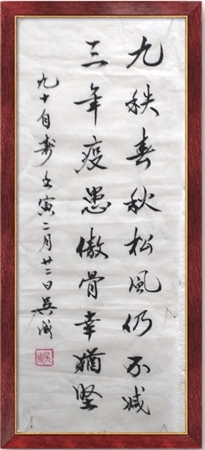 九秩春秋松风仍不减
三年疫患傲骨幸犹坚
九十自寿壬寅二月廿二日吴成